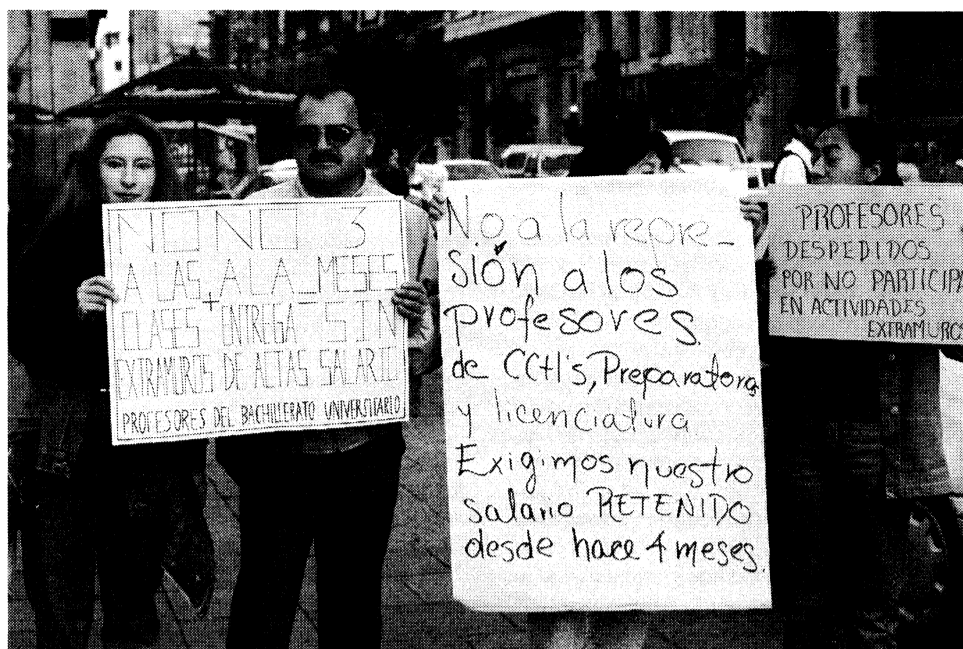 NO NO 3
A LAS A LA MESES
CLASES + ENTREGA = SIN
EXTRAMUROS DE ACTAS SALARIO
PROFESORES DEL BACHILLERATO UNIVERSITARIO
No a la repre-
sión a los
profesores
de CCH's, Preparatoria
y licenciatura
Exigimos nuestro
salario RETENIDO
desde hace 4 meses.
PROFESORES
DESPEDIDOS
POR NO PARTICIPA
EN ACTIVIDADES
EXTRAMUROS